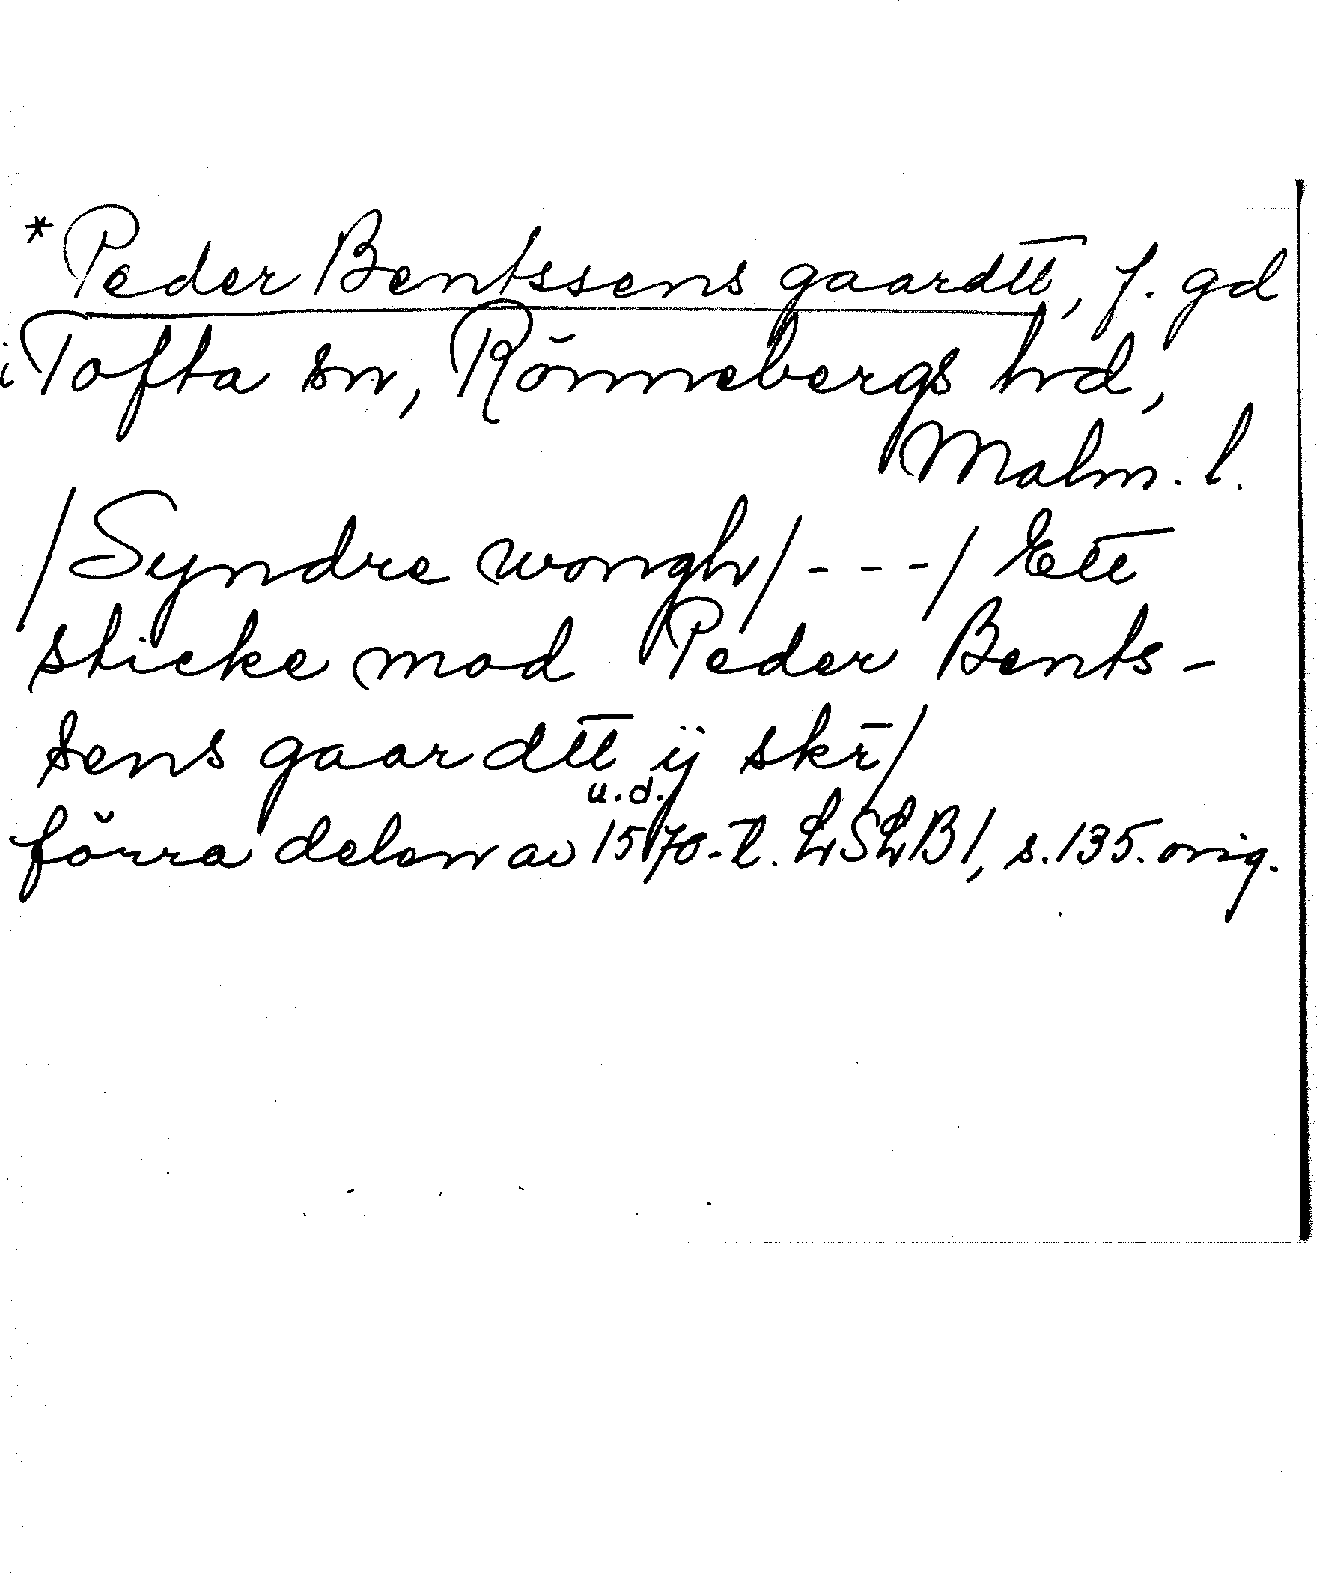 *Peder Bentssens gaardtt, f. gd
i Tofta sn, Rönnebergs hd,
Malm. l.
/Syndre wongh/---/Ett
sticke mod Peder Bents-
sens gaardtt ij skr̄/
u.d.
förra delen av 1570-t. LSLB 1, s. 135. orig.